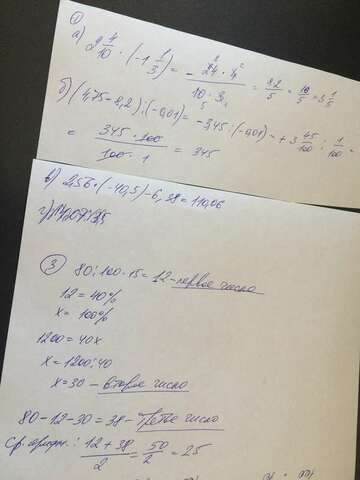 ①
а) 2 4/10 · (-1 1/3) = - 24 · 4 / 10 · 3 = = 3 1/5
б) (4,75-8,2) : (-0,01) = -3,45 : (-0,01) = + 3 45/100 : 1/100 =
= 345 · 100 / 100 · 1 = 345
в) 2,56 · (-40,5) - 6,38 = 110,06
③
80 : 100 · 15 = 12 - первое число
12 = 40%
x = 100%
1200 = 40x
x = 1200 : 40
x = 30 - второе число
80 - 12 - 30 = 38 - третье число
Ср. арифм.: 12 + 38 / 2 = 50 / 2 = 25